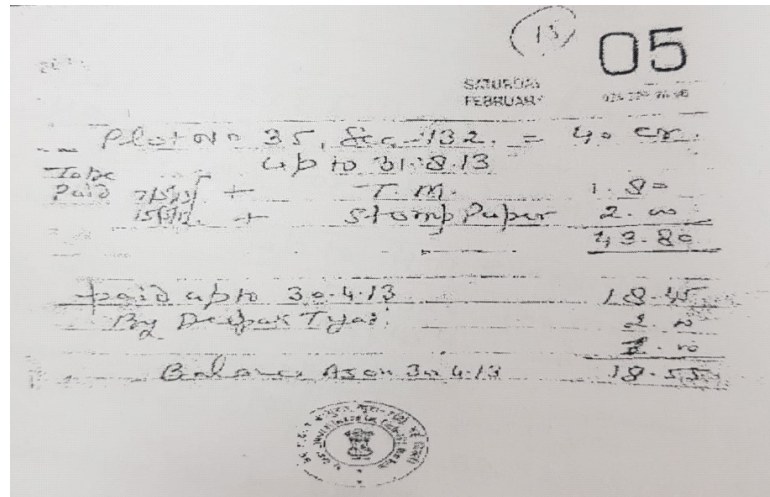 15
05
SATURDAY
FEBRUARY
Plot No 35, Sec-132. = 40 cr.
up to 31.8.13
To be
Paid + T.M. 1.80
+ Stamp Paper 2.00
43.80
paid up to 30.4.13 18.45
By Deepak Tyagi 2.00
18.55
Balance As on 30.4.13